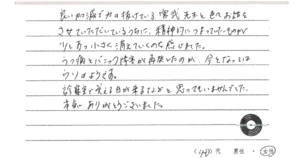 良い加減で力の抜けている 宮我先生と色々お話を
させていただいているうちに、精神的につまっていたものが
少しずつ小さく消えていくのを感じました。
うつ病とパニック障害が再発したのが、今となっては
ウソのようです。
診察室で笑える日が来るなどと思ってもいませんでした。
本当にありがとうございました。
(40)代 男性 ・ 女性